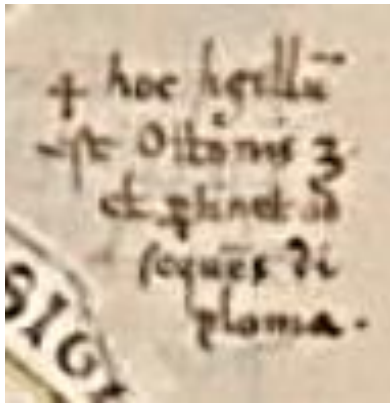 + hoc sigillū
est Ottonis 3
et ꝑtinet ad
sequēs di
ploma.
SIGI